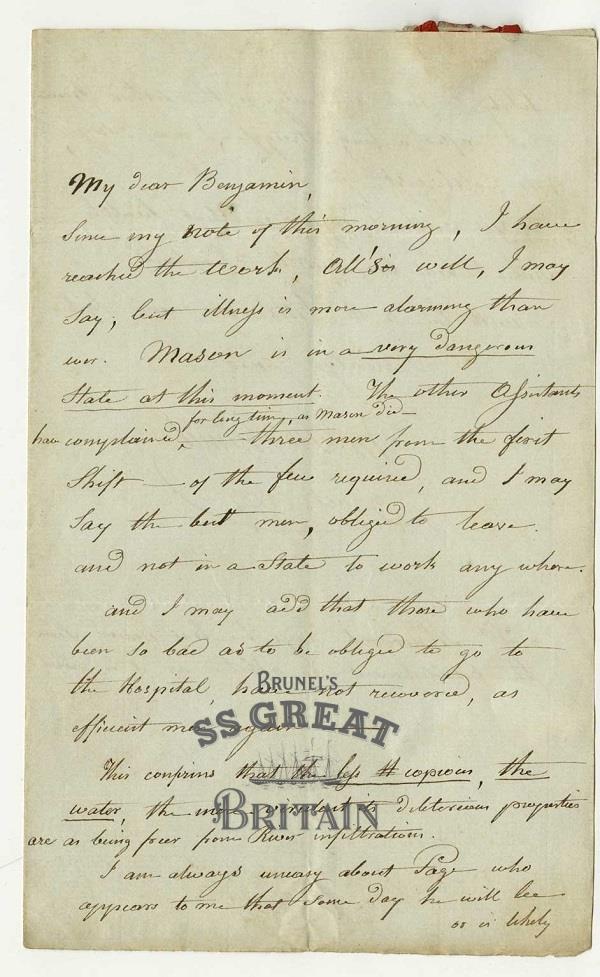 My dear Benjamin,
Since my note of this morning, I have
reached the Work, All's well, I may
Say, but illness is more alarming than
ever. Mason is in a very dangerous
State at this moment. The other Assistants
for long time, as Mason did—
have complained, — three men from the first
Shift — of the few required, and I may
Say the best men, obliged to leave.
and not in a State to work any where.
and I may add that those who have
been so bad as to be obliged to go to
the Hospital, have not recovered, as
efficient men again
This confirms that the less copious, the
water, the more virulent its deleterious properties
are as being freer from River infiltrations.
I am always uneasy about Page who
appears to me that some day he will be
as is likely
BRUNEL'S
SS GREAT
BRITAIN